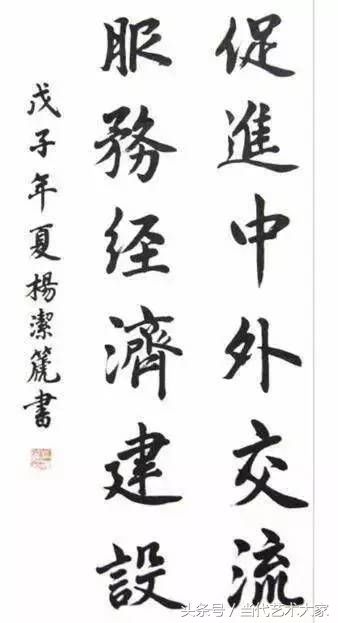 促進中外交流
服務经濟建設
戊子年夏楊潔篪書
头条号/当代艺术大家